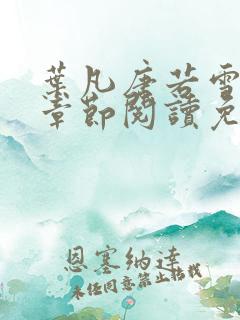 葉凡唐若雪
章節閱讀免
恩塞纳達
未经同意禁止搭载